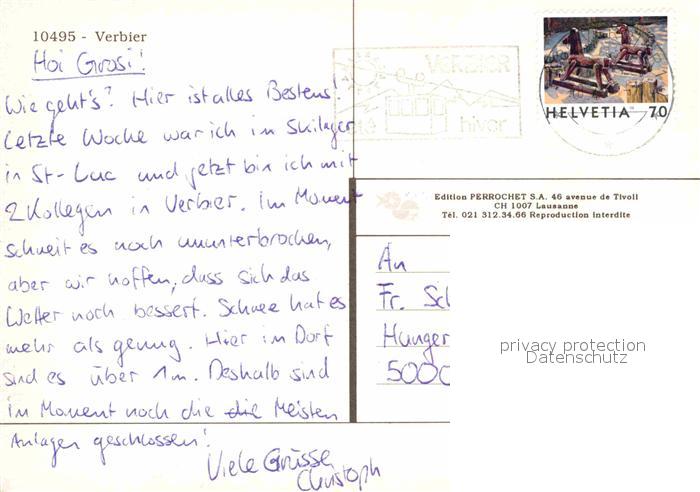 10495 - Verbier
Hoi Grosi!
Wie geht's? Hier ist alles Bestens!
Letzte Woche war ich im Skilager
in St-Luc und jetzt bin ich mit
2 Kollegen in Verbier. Im Moment
schneit es noch ununterbrochen,
aber wir hoffen, dass sich das
Wetter noch bessert. Schnee hat es
mehr als genug. Hier im Dorf
sind es über 1m. Deshalb sind
im Moment noch die die Meisten
Anlagen geschlossen!
Viele Grüsse
Christoph
VERBIER
été
hiver
HELVETIA 70
Edition PERROCHET S.A. 46 avenue de Tivoli
CH 1007 Lausanne
Tél. 021 312.34.66 Reproduction interdite
An
Fr. Sch
Hunger
5000
privacy protection
Datenschutz